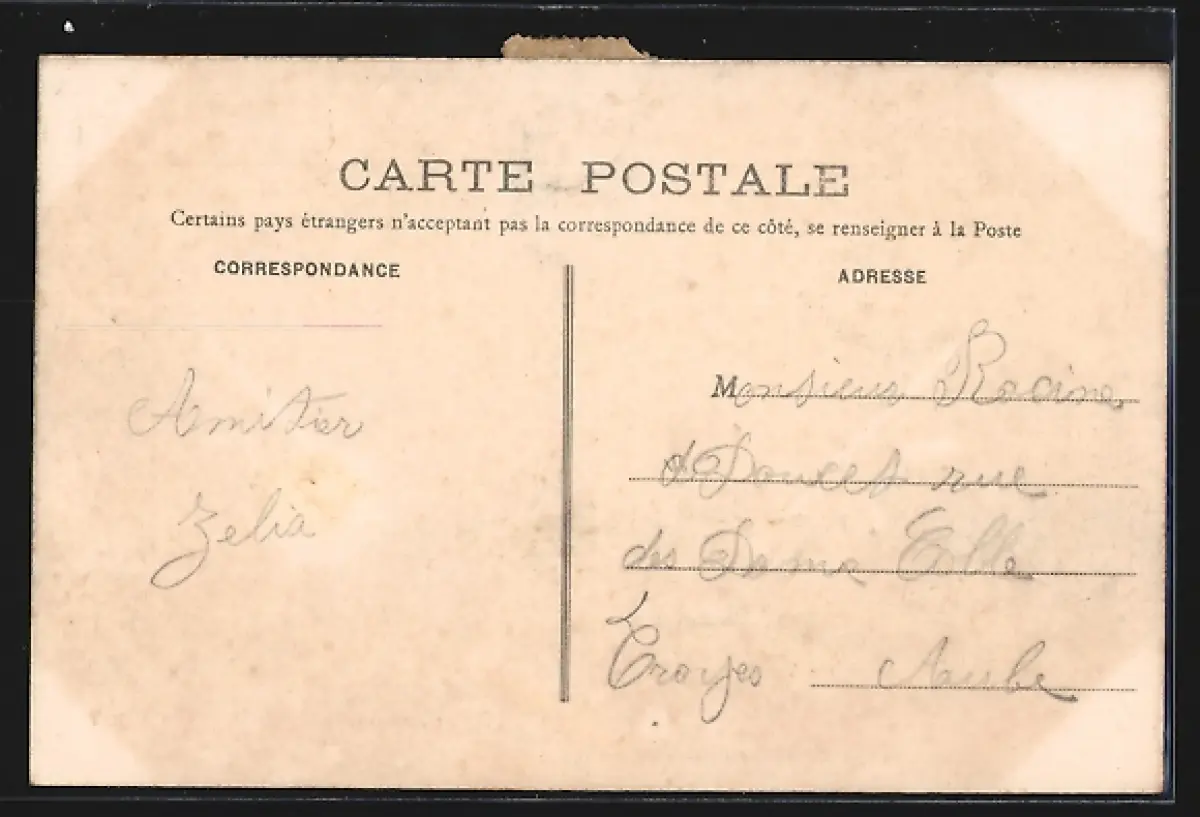 CARTE POSTALE
Certains pays étrangers n'acceptant pas la correspondance de ce côté, se renseigner à la Poste
CORRESPONDANCE
ADRESSE
Amitier
Zelia
Monsieur Racine
rue
des
Troyes Aube